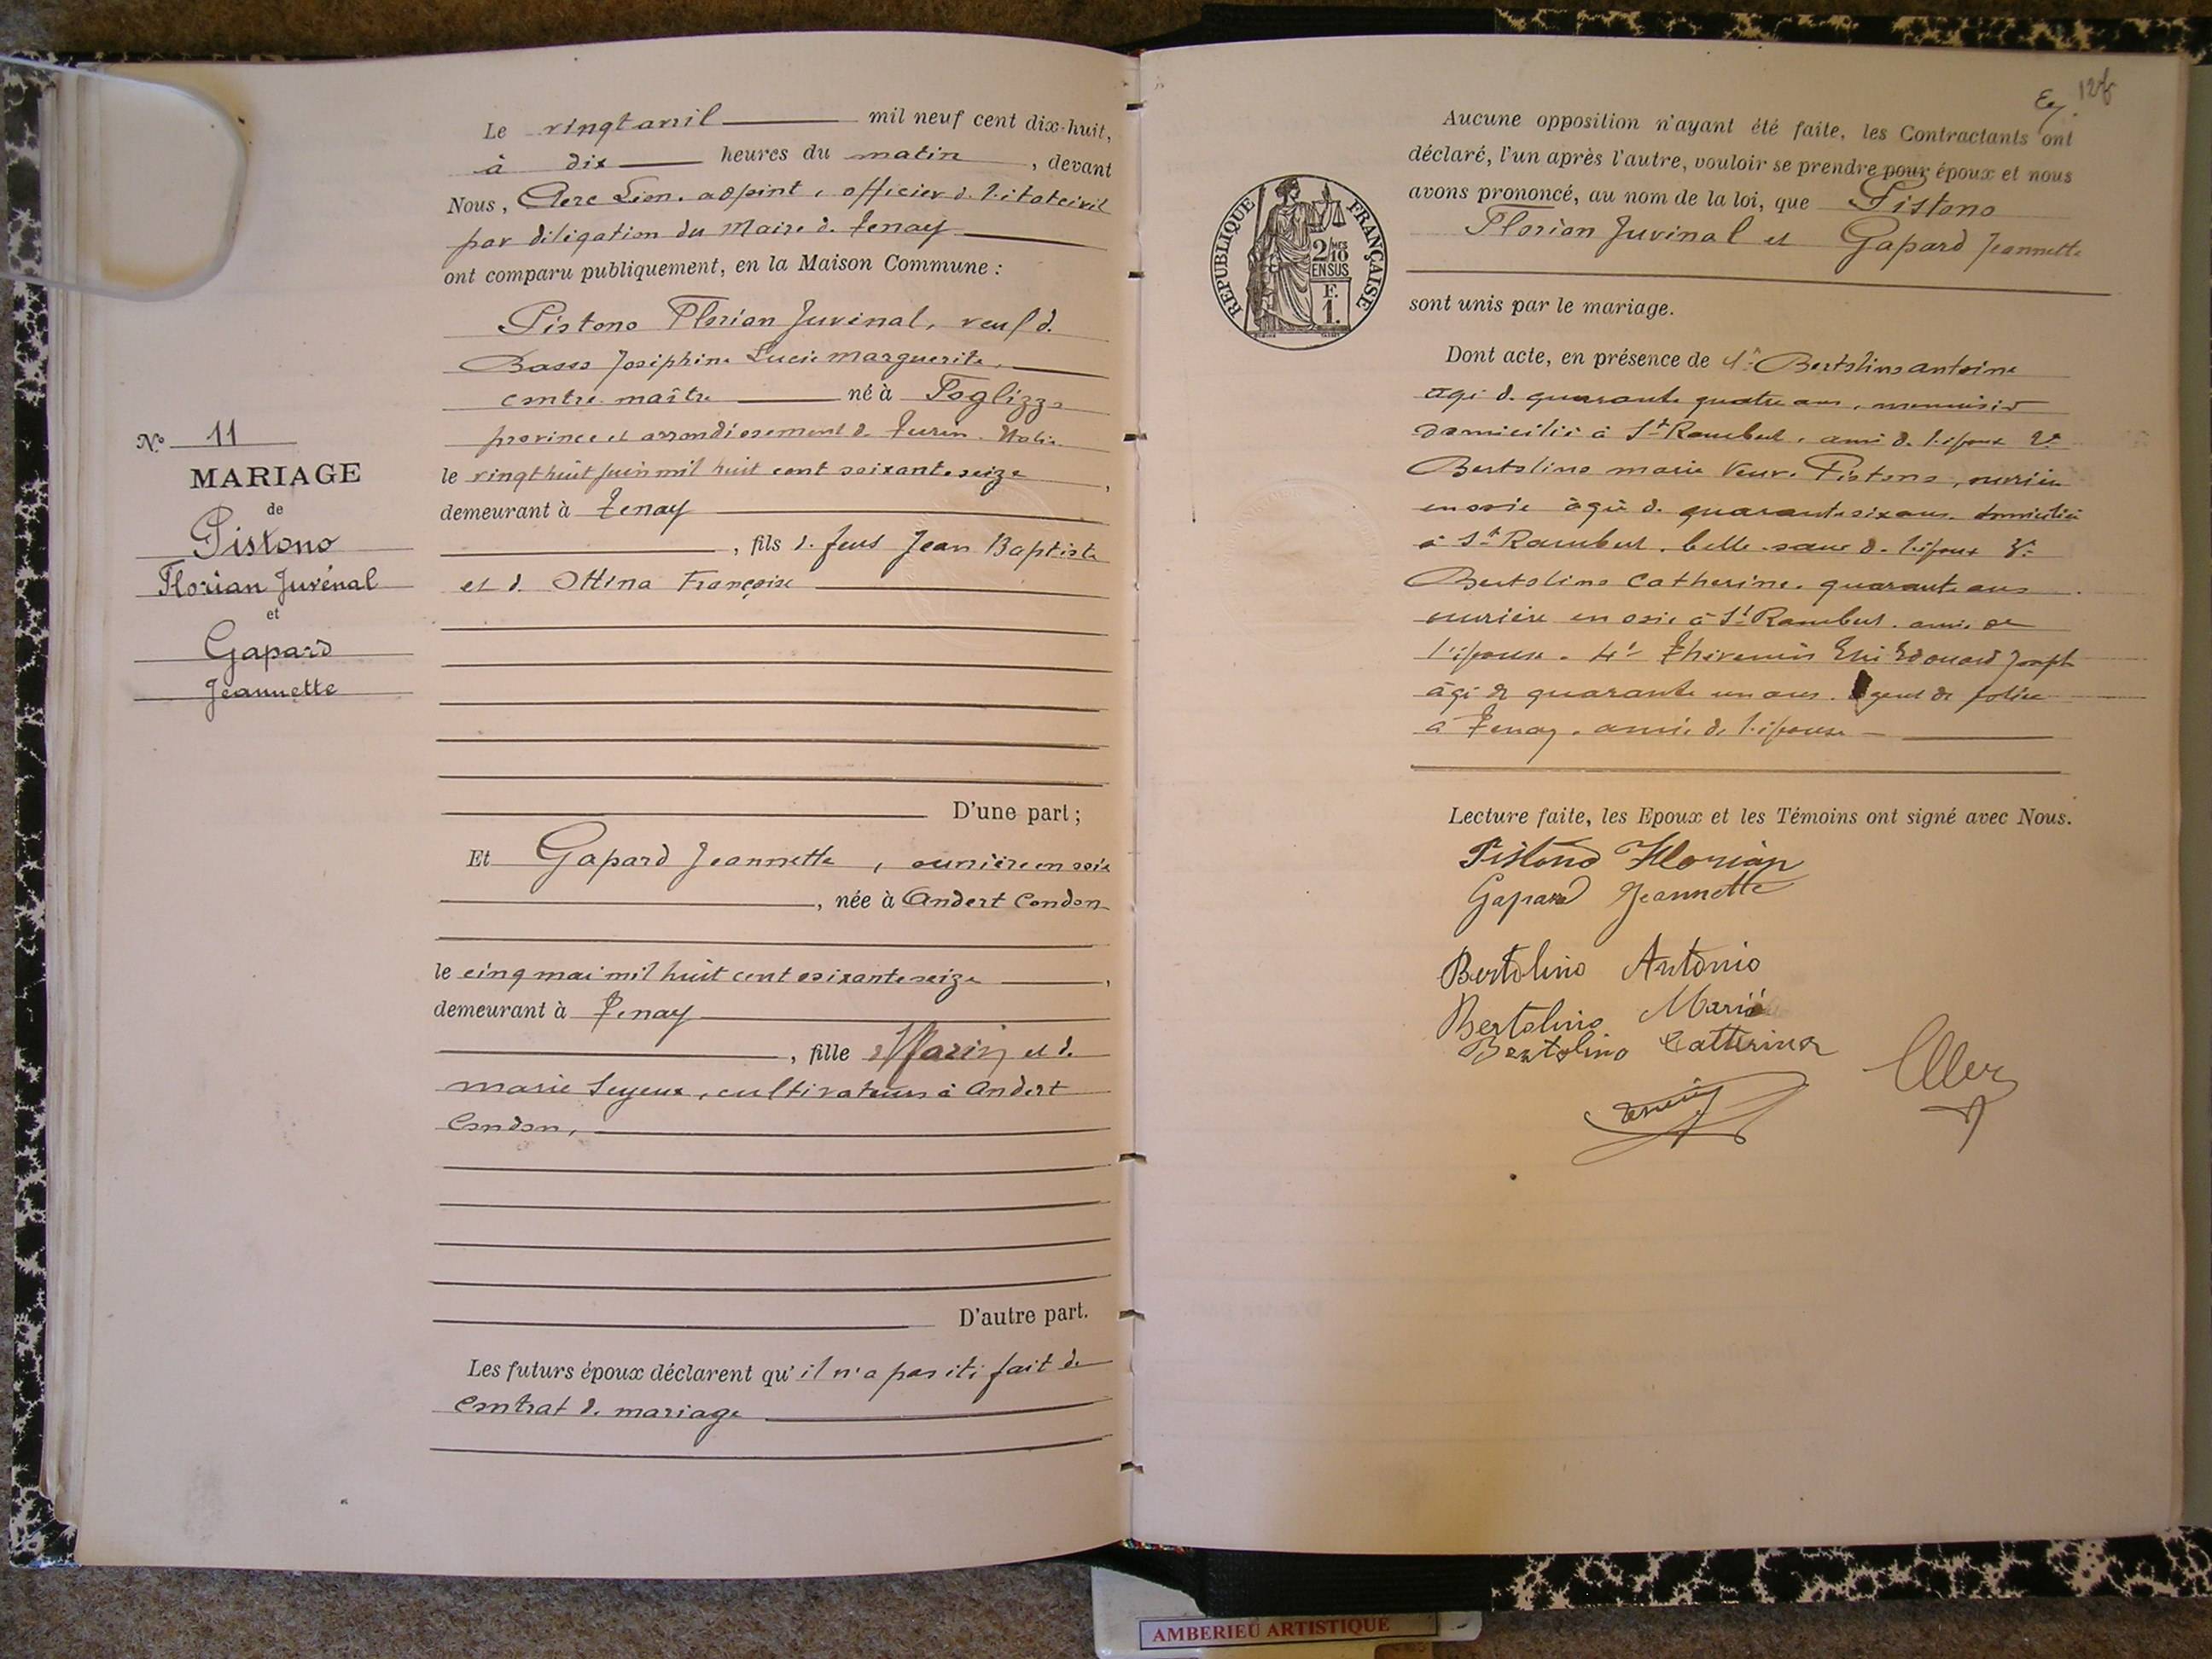 Le vingt avril mil neuf cent dix-huit,
à dix heures du matin, devant
Nous, Clerc Léon, adjoint, officier de l'état civil
par délégation du Maire de Tenay
ont comparu publiquement, en la Maison Commune :
Pistono Florian Juvénal, veuf de
Basso Joséphine Lucie Marguerite,
contre-maître né à Foglizzo
province et arrondissement de Turin. Italie
le vingt huit juin mil huit cent soixante seize,
demeurant à Tenay
, fils de feus Jean Baptiste
et de Ottina Françoise
D'une part ;
N° 11
MARIAGE
de
Pistono
Florian Juvénal
et
Gapard
Jeannette
Et Gapard Jeannette, ouvrière en soie
, née à Andert Condon
le cinq mai mil huit cent soixante seize,
demeurant à Tenay
, fille de Marin et de
marie Seyeux, cultivateurs à Andert
Condon,
D'autre part.
Les futurs époux déclarent qu'il n'a pas été fait de
contrat de mariage
Aucune opposition n'ayant été faite, les Contractants ont
déclaré, l'un après l'autre, vouloir se prendre pour époux et nous
avons prononcé, au nom de la loi, que Pistono
Florian Juvénal et Gapard Jeannette
sont unis par le mariage.
RÉPUBLIQUE FRANÇAISE
2/10 MES
EN SUS
F.
1.
Dont acte, en présence de 1° Bertolino antoine
âgé de quarante quatre ans, menuisier
domicilié à St Rambert, ami de l'époux 2°
Bertolino marie Veuve Pistono, ouvrière
en soie âgée de quarante six ans, domiciliée
à St Rambert, belle-soeur de l'époux 3°
Bertolino Catherine, quarante ans
ouvrière en soie à St Rambert, amie de
l'épouse. 4° Thévenin Edouard Joseph
âgé de quarante un ans. Agent de police
à Tenay, ami de l'épouse
Lecture faite, les Epoux et les Témoins ont signé avec Nous.
Pistono Florian
Gapard Jeannette
Bertolino Antonio
Bertolino Maria
Bertolino Catterina
AMBERIEU ARTISTIQUE